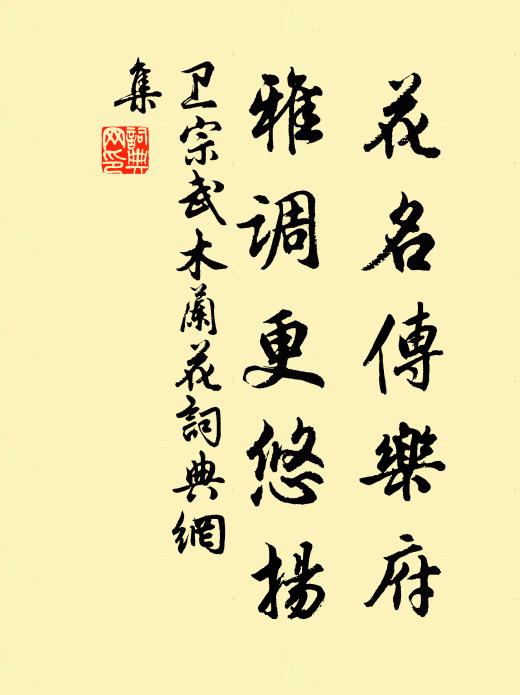 花名傳樂府
雅調更悠揚
卫宗武木蘭花詞典網
集
詞典网印